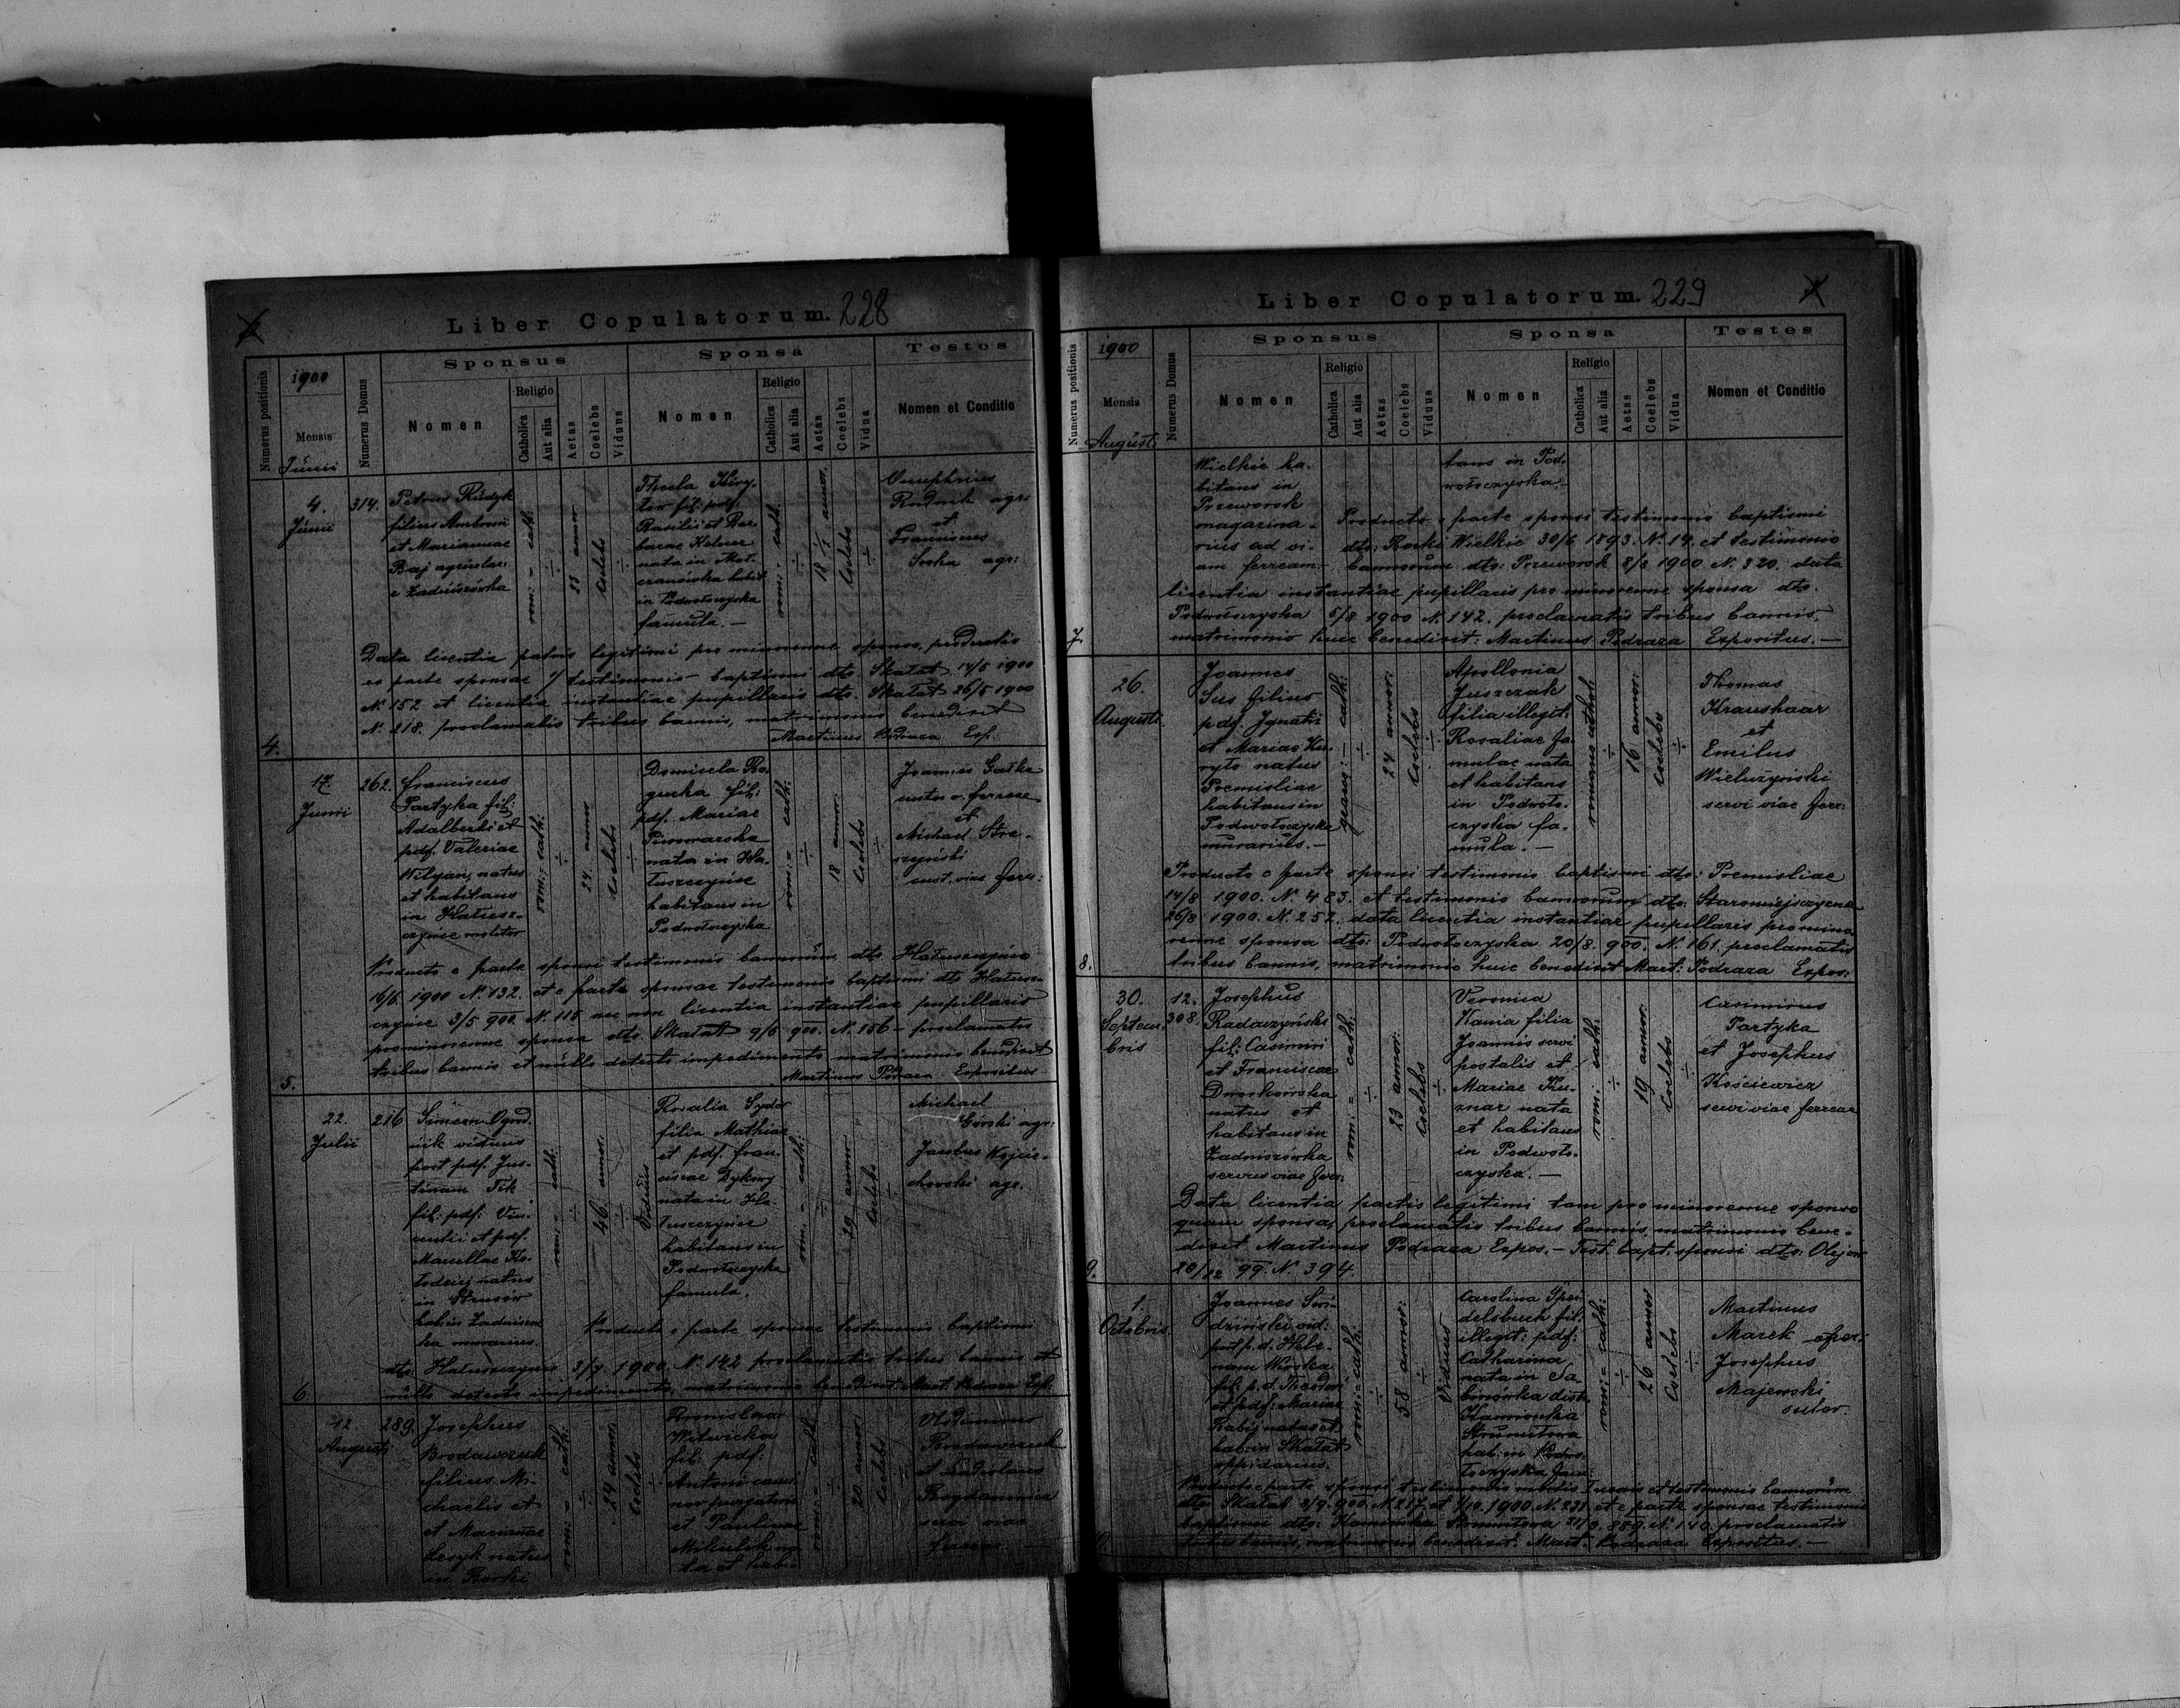 Liber Copulatorum. 228
Numerus positionis
1900
Mensis
Junii
Numerus Domus
Sponsus
Nomen
Religio
Catholica
Aut alia
Aetas
Coelebs
Viduus
Sponsa
Nomen
Religio
Catholica
Aut alia
Aetas
Coelebs
Vidua
Testes
Nomen et Conditio
4.
4.
Junii
314.
Petrus Rudyk
filius Ambrosii
et Mariannae
Baj agricolar:
e Zadniszówka
rom: - cath:
annor
Coelebs
Thecla
fil: pdf:
Basilii et Bar-
barae
nata in
habit.
in Podwołoczyska
famula. —
rom: - cath:
18 annor.
Coelebs
Onuphrius
Rudnik agr:
et
Franciscus
Socha agr:
Data licentia patris legitimi pro minorenne sponso, producto
ex parte sponsae testimonio baptismi dto. Skałat 14/5 1900
N. 152 et licentia instantiae pupillaris dto. Skałat 26/5 1900
N. 218. proclamatis tribus bannis, matrimonio benedixit
Martinus Podraza Exp.
5.
17.
Junii
262.
Franciscus
Partyka fil:
Adalberti et
pdf. Valeriae
natus
et habitans
in Hałusz-
czyńce molitor
rom: - cath:
24 annor
Coelebs
Domicela Ro-
gucka fil:
pdf. Mariae
Piwowarska
nata in Ha-
łuszczyńce
habitans in
Podwołoczyska
rom: - cath:
18 annor.
Coelebs
Joannes
custos v. ferreae
et
Michael
cust. viae ferr:
Producto e parte sponsi testimonio bannorum dto. Hałuszczyńce
16/6 1900 N. 132. et e parte sponsae testimonio baptismi dto Hałusz-
czyńce 3/5 900. N. 115 nec non licentia instantiae pupillaris
pro minorenne sponsa dto. Skałat 9/6 900. N. 156 - proclamatis
tribus bannis et nullo detecto impedimento matrimonio benedixit
Martinus Podraza Expositus
6.
22.
Julii
216
Simeon Ogrod-
nik viduus
post pdf. Jus-
tinam
fil: pdf: Vin-
centii et pdf.
Marcellae Ko-
łodziej natus
in Strusów
habit Zadniszów-
ka murarius.
rom: - cath:
46 annor.
Viduus
Rosalia
filia Mathiae
et pdf. Fran-
ciscae
nata in Ha-
łuszczyńce
habitans in
Podwołoczyska
famula.
rom: - cath:
annor
Coelebs
Michael
Górski agr:
Jacobus Wojcie-
chowski agr.
Producto e parte sponsae testimonio baptismi
dto Hałuszczyńce 3/7. 1900. N. 142 proclamatis tribus bannis et
nullo detecto impedimento, matrimonio benedixit Mart. Podraza Exp.
12.
Augusti
289.
Josephus
Brodawczuk
filius Mi-
chaelis et
et Mariannae
Lesyk natus
in Borki
rom: - cath:
24 annor.
Coelebs
Bronislava
Witwicka
fil: pdf:
Antoni
et Paulinae
Mikulik na-
ta et habi-
rom: - cath:
20 annor
Coelebs
Vladimirus
Brodawczuk
et Ladislaus
viae
ferreae
Liber Copulatorum. 229
Numerus positionis
1900
Mensis
August.
Numerus Domus
Sponsus
Nomen
Religio
Catholica
Aut alia
Aetas
Coelebs
Viduus
Sponsa
Nomen
Religio
Catholica
Aut alia
Aetas
Coelebs
Vidua
Testes
Nomen et Conditio
7.
Wielkie ha-
bitans in
Przeworsk
magazina-
rius ad vi-
am ferream.
tans in Pod-
wołoczyska. —
Producto e parte sponsi testimonio baptismi
dto: Borki Wielkie 30/6 1893. N. 19. et testimonio
bannorum dto: Przeworsk 8/8 1900 N. 320. data
licentia instantiae pupillaris pro minorenne sponsa dto.
Podwołoczyska 5/8 1900 N. 142. proclamatis tribus bannis,
matrimonio huic benedixit: Martinus Podraza Expositus. —
8.
26.
Augusti
Joannes
Sus filius
pdf. Ignatii
et Mariae Ku-
ryło natus
Premisliae
habitans in
Podwołoczyska
murarius. —
graec: - cath:
24 annor:
Coelebs
Apollonia
Juszczak
filia illegit:
Rosaliae fa-
mulae nata
et habitans
in Podwoło-
czyska fa-
mula. —
romano cathol:
16 annor:
Coelebs
Thomas
Kraushaar
et
Emilus
Wieluzyński
servi viae ferr:
Producto e parte sponsi testimonio baptismi dto: Premisliae
14/8 1900. N. 483. et testimonio bannorum dto: Staromiejszczyzna
26/8 1900. N. 257. data licentia instantiae pupillaris pro mino-
renne sponsa dto: Podwołoczyska 20/8. 900. N. 161. proclamatis
tribus bannis, matrimonio huic benedixit Mart: Podraza Expos:
9.
30.
Septem-
bris
12.
308.
Josephus
Radaczyński
fil: Casimiri
et Franciscae
Dworkowska
natus et
habitans in
Zadniszówka
servus viae ferr:
rom: - cath:
23 annor:
Coelebs
Veronica
Kania filia
Joannis servi
postalis et
Mariae Ku-
znar nata
et habitans
in Podwoło-
czyska. —
rom: - cath:
19 annor:
Coelebs
Casimirus
Partyka
et Josephus
Kościewicz
servi viae ferreae
Data licentia patris legitimi tam pro minorenne sponso
quam sponsa, proclamatis tribus bannis, matrimonio bene-
dixit Martinus Podraza Expos. — Test. bapt. sponsi dto: Olejów
20/12 99. N. 394.
1.
Octobris
Joannes Świ-
dziński vid:
post p.d. Hele-
nam
fil. p.d. Theodori
et pdf: Mariae
Babij natus et
hab: in Skałat
oppidarius.
rom: - cath:
58 annor:
Viduus
Carolina Spei-
delsbach fil:
illegit: pdf:
Catharina
nata in Sa-
binówka distr.
Kamionka
Strumiłowa
hab: in Podwo-
łoczyska fam:
rom: - cath:
26 annor
Coelebs
Martinus
Marek
Josephus
Majewski
sutor.
Producto e parte sponsi testimonio mortis et testimonio bannorum
dto. Skałat 2/9. 900. N. 217. et 1/10. 1900. N. 231. et e parte sponsae testimonio
baptismi dto: Kamionka Strumiłowa 889. N. 140. proclamatis
tribus bannis, matrimonio benedixit: Mart. Podraza Expositus. —